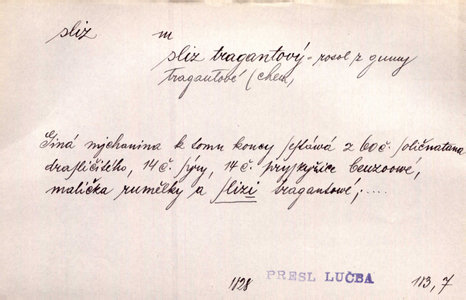 sliz m
sliz tragantový - rosol z gumy
tragantové (chem)
Giná mjchanina k tomu koncy sestáwá z 60 č. soličnatanu
drasličitého, 14 č. sýry, 14 č. pryskyřice benzoowé,
malička rumělky a slizi tragantowé; ....
1828 PRESL LUČBA 113, 7